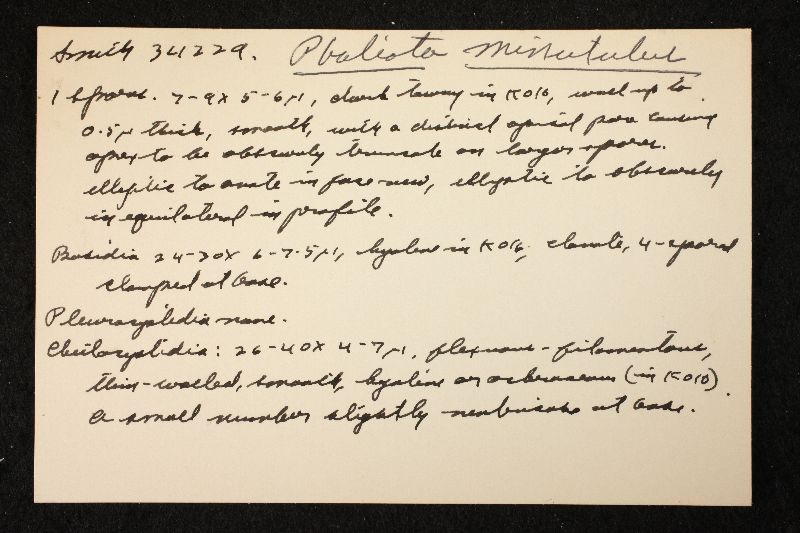 Smith 34229. Pholiota minutula
1 Spores. 7-9 x 5-6 µ, dark tawny in KOH, wall up to
0.5 µ thick, smooth, with a distinct apical pore causing
apex to be obscurely truncate on larger spores.
elliptic to ovate in face-view, elliptic to obscurely
inequilateral in profile.
Basidia 24-30 x 6-7.5 µ, hyaline in KOH, clavate, 4-spored
clamped at base.
Pleurocystidia none.
Cheilocystidia: 26-40 x 4-7 µ, flexuous-filamentous,
thin-walled, smooth, hyaline or ochraceous (in KOH).
a small number slightly at base.